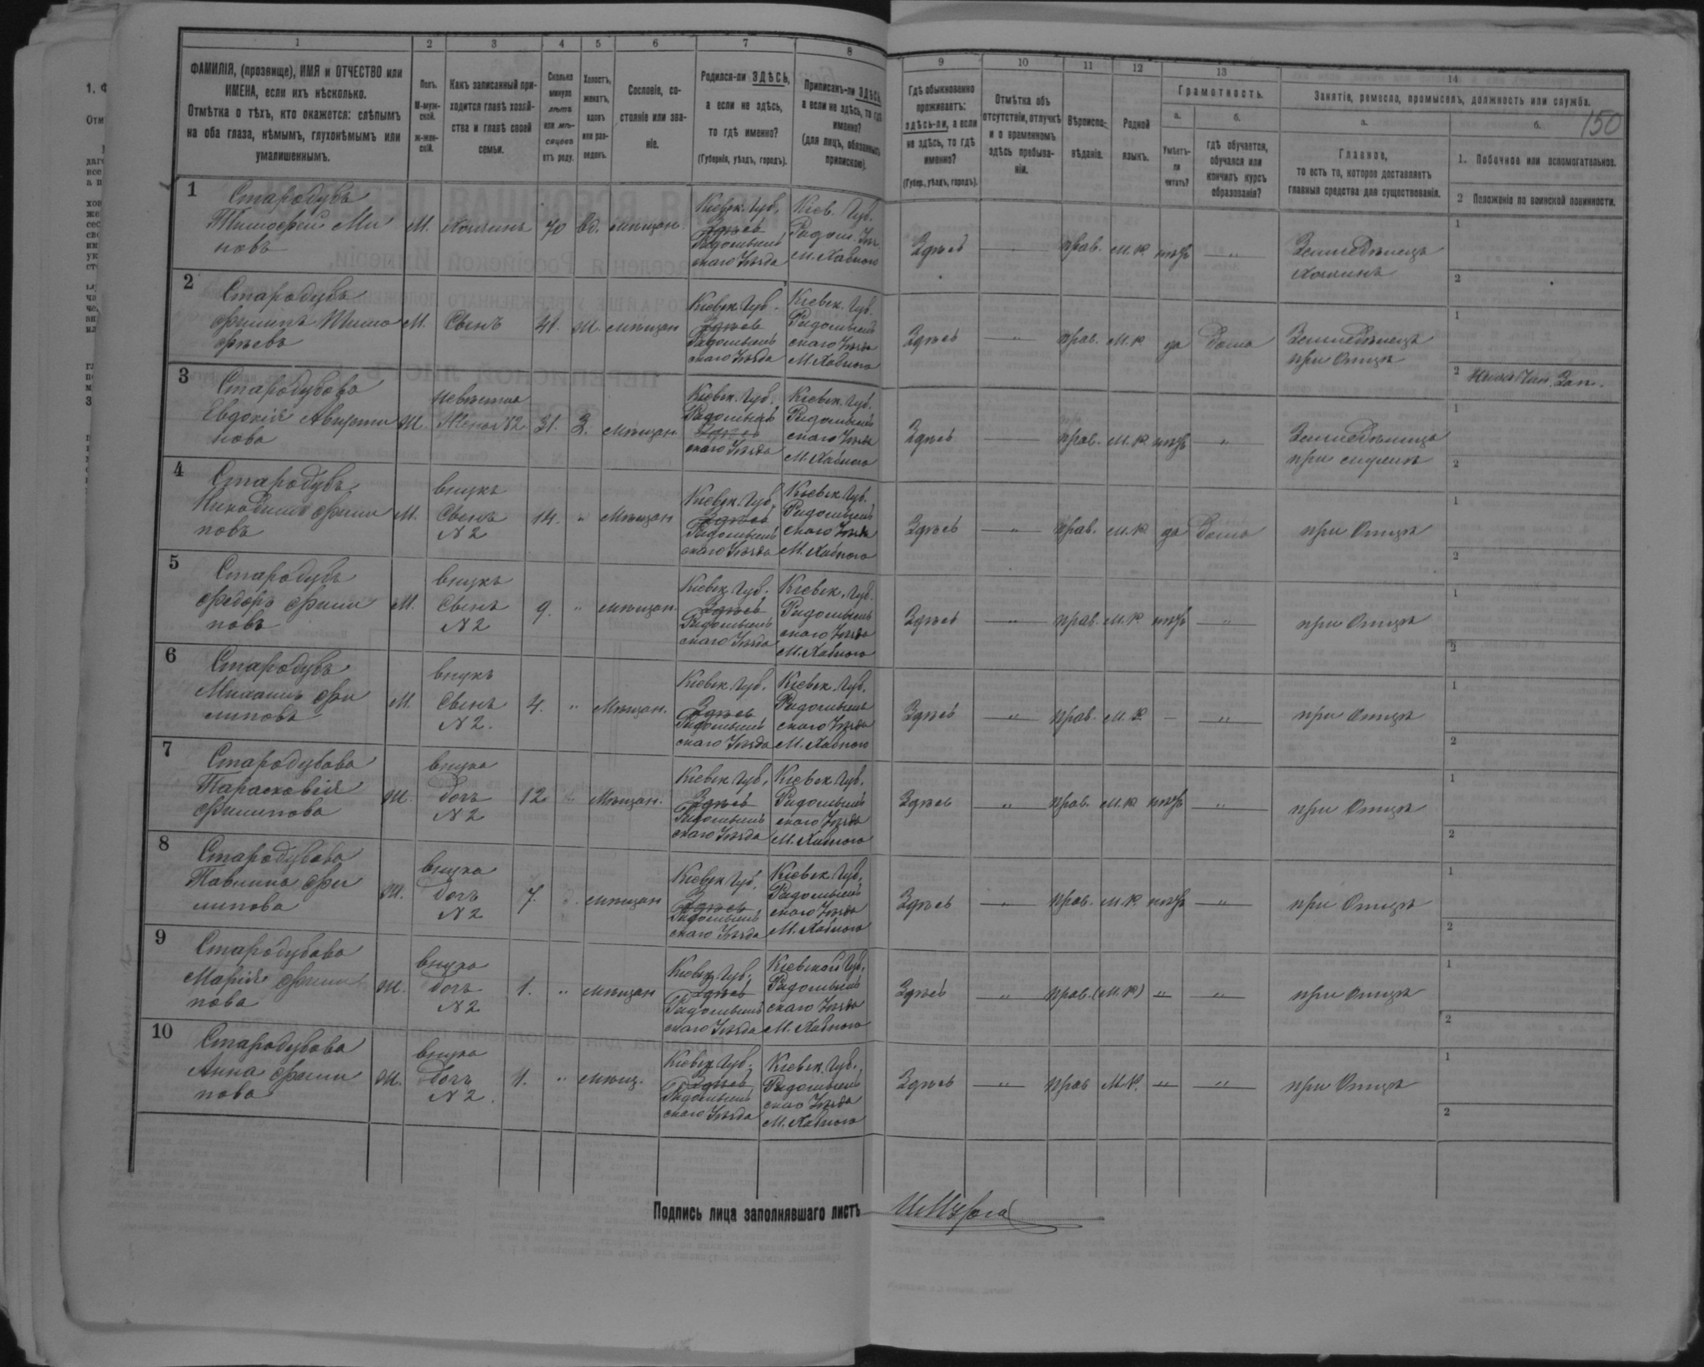 150
1 2 3 4 5 6 7 8 9 10 11 12 13 14
ФАМИЛІЯ, (прозвище), ИМЯ и ОТЧЕСТВО или
ИМЕНА, если ихъ нѣсколько.
Отмѣтка о тѣхъ, кто окажется: слѣпымъ
на оба глаза, нѣмымъ, глухонѣмымъ или
умалишеннымъ.
Полъ.
М-муж-
ской.
Ж-жен-
скій.
Какъ записанный при-
ходится главѣ хозяй-
ства и главѣ своей
семьи.
Сколько
минуло
лѣтъ
или мѣ-
сяцевъ
отъ роду.
Холостъ,
женатъ,
вдовъ
или раз-
веденъ.
Сословіе, со-
стояніе или зва-
ніе.
Родился-ли ЗДѢСЬ,
а если не здѣсь,
то гдѣ именно?
(Губернія, уѣздъ, городъ).
Приписанъ-ли ЗДѢСЬ,
а если не здѣсь, то гдѣ
именно?
(для лицъ, обязанныхъ
припискою).
Гдѣ обыкновенно
проживаетъ:
здѣсь-ли, а если
не здѣсь, то гдѣ
именно?
(Губер., уѣздъ, городъ).
Отмѣтка объ
отсутствіи, отлучкѣ
и о временномъ
здѣсь пребыва-
ніи.
Вѣроиспо-
вѣданіе.
Родной
языкъ.
Грамотность.
а.
Умѣетъ-
ли
читать?
б.
гдѣ обучается,
обучался или
кончилъ курсъ
образованія?
Занятіе, ремесло, промыселъ, должность или служба.
а.
Главное,
то есть то, которое доставляетъ
главныя средства для существованія.
б.
1. Побочное или вспомогательное.
2 Положеніе по воинской повинности.
1
Стародубъ
Тимофей Ми
новъ
М. Хозяинъ 70 Вд. мѣщан.
Кіевск. Губ.
Здѣсь
Радомысль
скаго Уѣзда
Кіев. Губ.
Радом. Уѣз.
М. Хабного
Здѣсь прав. М. Р нѣтъ "
Земледѣлецъ
Хозяинъ
1
2
2
Стародубъ
Филипъ Тимо
фѣевъ
М. Сынъ 41. Ж. мѣщан
Кіевск. Губ.
Здѣсь
Радомысль
скаго Уѣзда
Кіевск. Губ.
Радомысль
скаго Уѣзда
М. Хабного
Здѣсь " прав. М. Р да дома
Земледѣлецъ
при Отцѣ
1
2
3
Стародубова
Евдокія
нова
Ж.
невѣстка
Жена N2
31. З. мѣщан
Кіевск. Губ.
Радомысль
Здѣсь
скаго Уѣзда
Кіевск. Губ.
Радомысль
скаго Уѣзда
М. Хабного
Здѣсь прав. М. Р нѣтъ "
Земледѣлица
при мужѣ
1
2
4
Стародубъ
Никодимъ Фили
повъ
М.
внукъ
Сынъ
N 2
14. " мѣщан
Кіевск. Губ.
Здѣсь
Радомысль
скаго Уѣзда
Кіевск. Губ.
Радомысль
скаго Уѣзда
М. Хабного
Здѣсь " прав. М. Р да дома при Отцѣ
1
2
5
Стародубъ
Федоръ Фили
повъ
М.
внукъ
Сынъ
N 2
9. " мѣщан.
Кіевск. Губ.
Здѣсь
Радомысль
скаго Уѣзда
Кіевск. Губ.
Радомысль
скаго Уѣзда
М. Хабного
Здѣсь " прав. М. Р нѣтъ " при Отцѣ
1
2
6
Стародубъ
Михаилъ Фи
липовъ
М.
внукъ
Сынъ
N 2.
4. " Мѣщан.
Кіевск. Губ.
Здѣсь
Радомысль
скаго Уѣзда
Кіевск. Губ.
Радомысль
скаго Уѣзда
М. Хабного
Здѣсь " прав. М. Р. – " при Отцѣ
1
2
7
Стародубова
Парасковія
Филипова
Ж.
внука
дочь
N 2
12 " Мѣщан.
Кіевск. Губ.
Здѣсь
Радомысль
скаго Уѣзда
Кіевск. Губ.
Радомысль
скаго Уѣзда
М. Хабного
Здѣсь " прав. М. Р нѣтъ " при Отцѣ
1
2
8
Стародубова
Павлина Фи
липова
Ж.
внука
дочь
N 2
7. " мѣщан
Кіевск. Губ.
Здѣсь
Радомысль
скаго Уѣзда
Кіевск. Губ.
Радомысль
скаго Уѣзда
М. Хабного
Здѣсь " прав. М. Р нѣтъ " при Отцѣ
1
2
9
Стародубова
Марія Филип
пова
Ж.
внука
дочь
N 2
1. " мѣщан
Кіевск. Губ.
Здѣсь
Радомысль
скаго Уѣзда
Кіевской Губ.
Радомысль
скаго Уѣзда
М. Хабного
Здѣсь " прав. (М. Р) " " при Отцѣ
1
2
10
Стародубова
Анна Фили
пова
Ж.
внука
дочь
N 2.
1. " мѣщ.
Кіевск. Губ.
Здѣсь
Радомысль
скаго Уѣзда
Кіевск. Губ.
Радомысль
скаго Уѣзда
М. Хабного
Здѣсь " прав М. Р. " " при Отцѣ
1
2
Подпись лица заполнявшаго листъ